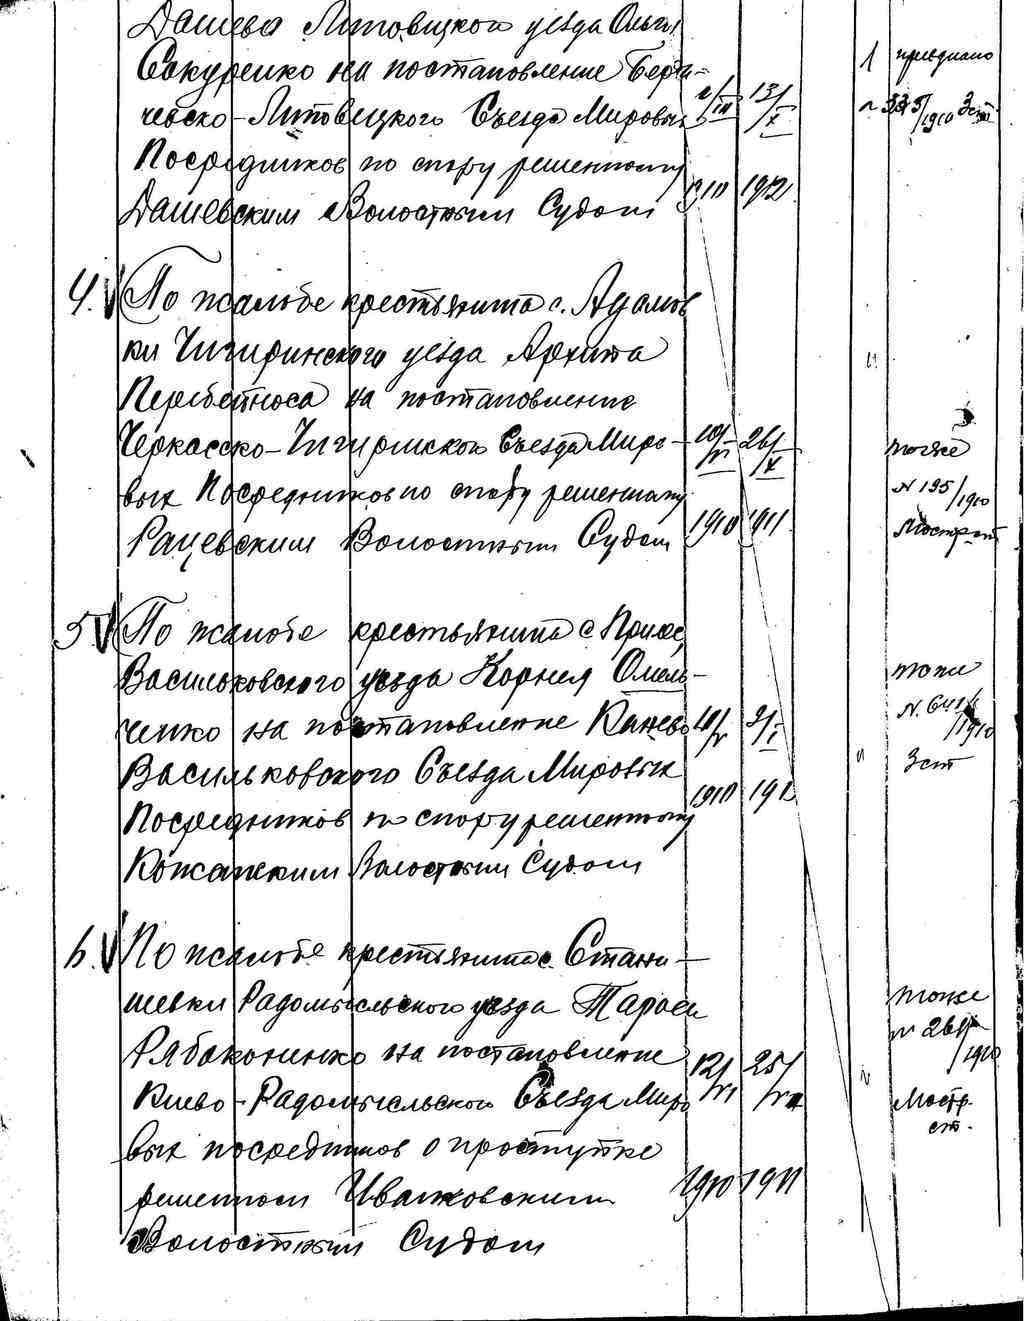 Дашева Липовецкого уезда Ольги
Сокуренко на постановление Берди-
чевско-Липовецкого Съезда Мировых 13/X
Посредников по спору решенному
Дашевским Волостным Судом 1910 1912
1
№ 335/1910 Зст.
4. По жалобе крестьянина с. Адамов
ки Чигиринского уезда Архипа
Перебейноса на постановление
Черкасско-Чигиринского Съезда Миро- 10/VI 26/X
вых Посредников по спору решенному
Рацевским Волостным Судом 1910 1911
тоже
№ 195/1910
5. По жалобе крестьянина с
Васильковского уезда Корнея Омель-
ченко на постановление Канево
Васильковского Съезда Мировых
Посредников по спору решенному 1910
Кожанским Волостным Судом
тоже
Зст
6. По жалобе крестьянина с. Стани-
шевки Радомысльского уезда Тараса
Рябоконенко на постановление
Киево-Радомысльского Съезда Миро 12/VI
вых посредников о проступке
решенном Иванковским 1910 1911
Волостным Судом
тоже
№ 261/1910